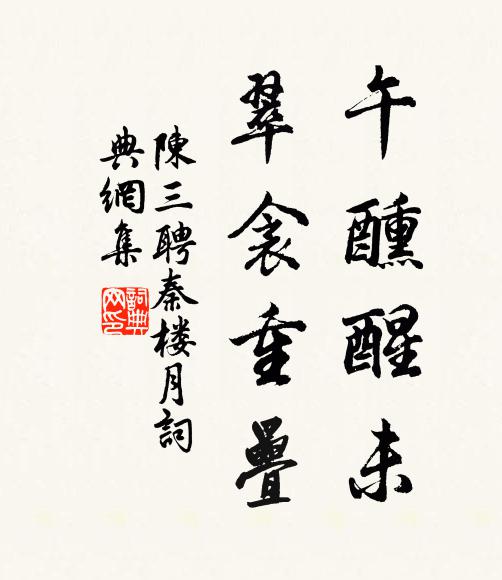 午醺醒未
翠衾重疊
陳三聘秦楼月詞
典網集
詞典网印